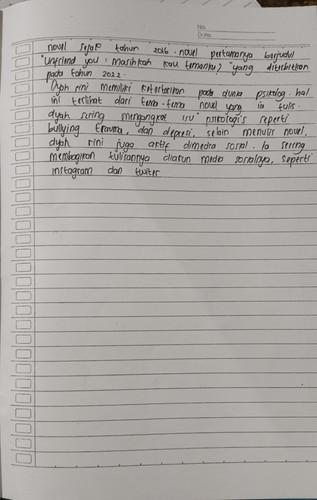 No.
Date
novel sejak tahun 2016. novel pertamanya berjudul
"Unfriend you : masihkah kau temanku?" yang diterbitkan
pada tahun 2022.
Dyah rini memiliki ketertarikan pada dunia psikolog. hal
ini terlihat dari tema-tema novel yang ia tulis.
dyah sering mengangkat isu" psikologis seperti
bullying trauma, dan depresi, selain menulis novel,
dyah rini juga aktif dimedia sosial. Ia sering
membagikan tulisannya diakun media sosialnya, seperti
instagram dan twiter